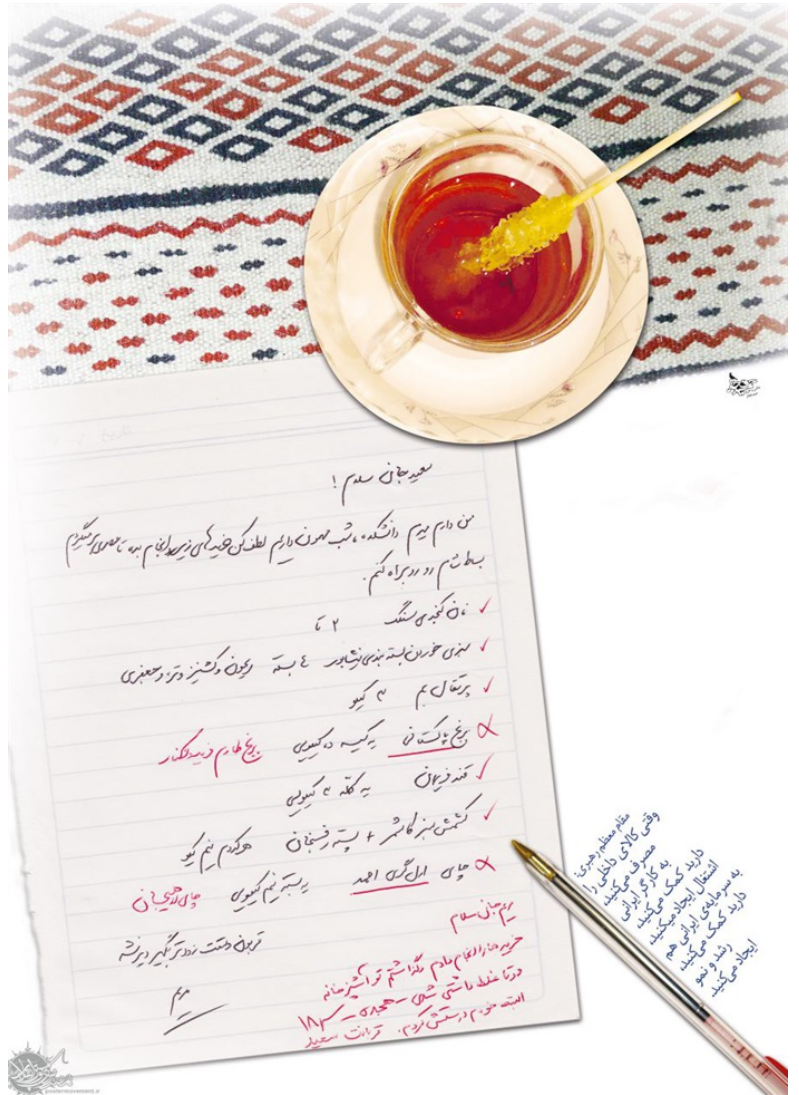 سعید جان سلام !
من دارم میرم دانشکده، شب مهمون داریم لطف کن خریدهای زیر رو انجام بده تا
بساط شام رو روبراه کنم.
نان کنجدی سنگک ۲ تا
سبزی خوردن بسته بندی نیشابور ٤ بسته ریحون و گشنیز و تره و جعفری
پرتقال بم ۳ کیلو
برنج پاکستانی یه کیسه ده کیلویی برنج طارم فریدونکنار
قند فریمان یه کله ۳ کیلویی
کشمش سبز کاشمر + پسته رفسنجان هرکدوم نیم کیلو
چای ارل گری احمد یه بسته نیم کیلویی چای لاهیجان
قربون دستت زودتر بگیر دیر نشه
مریم
مریم جان سلام
خریدها را انجام دادم گذاشتم تو آشپزخانه
دوتا غلط داشتی شدی ۱۸
البته خودم درستش کردم. قربانت سعید
مقام معظم رهبری:
وقتی کالای داخلی را
مصرف می‌کنید،
به کارگر ایرانی
دارید کمک می‌کنید،
اشتغال ایجاد میکنید،
به سرمایه‌ی ایرانی هم
دارید کمک می‌کنید،
رشد و نمو
ایجاد می‌کنید.
postermovement.ir